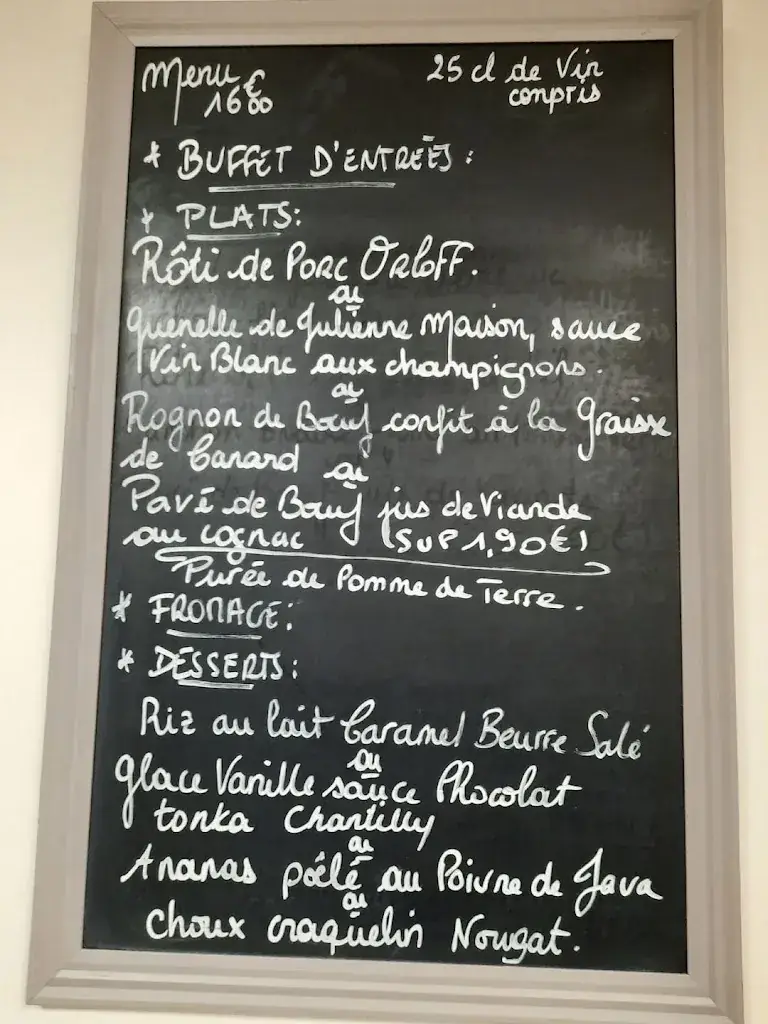 Menu 16€00
25 cl de Vin
conpris
* BUFFET D'ENTREÉS :
* PLATS:
Rôti de Porc ORloFF.
ou
quenelle de Julienne Maison, sauce
Vin Blanc aux champignons.
ou
Rognon de Bœuf confit à la graisse
de Canard ou
Pavé de Bœuf jus de Viande
au cognac (SUP 1,90€)
Purée de Pomme de Terre.
* FROMAGE:
* DESSERTS:
Riz au lait Caramel Beurre Salé
ou
glace Vanille sauce Chocolat
tonka Chantilly
ou
Ananas poêlé au Poivre de Java
ou
choux craquelin Nougat.